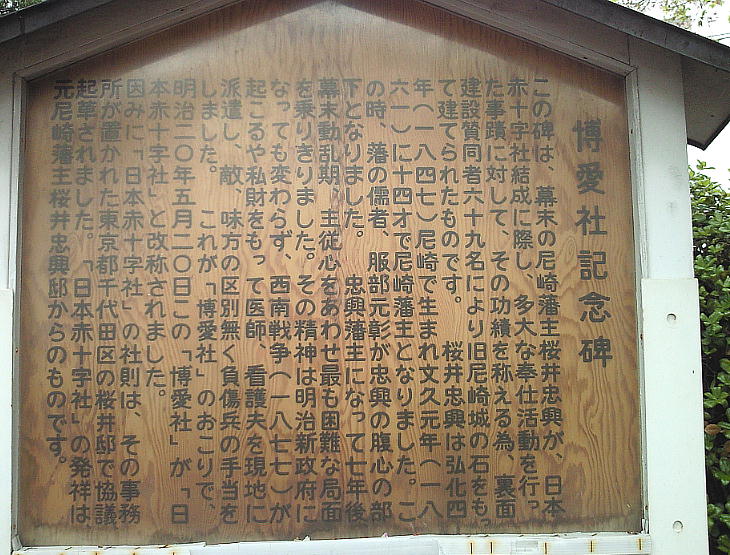 博愛社記念碑
この碑は、幕末の尼崎藩主桜井忠興が、日本
赤十字社結成に際し、多大な奉仕活動を行っ
た事蹟に対して、その功績を称える為、裏面
建設賛同者六十九名により旧尼崎城の石をもっ
て建てられたものです。　桜井忠興は弘化四
年(一八四七)尼崎で生まれ文久元年(一八
六一)に十四才で尼崎藩主となりました。こ
の時、藩の儒者、服部元彰が忠興の腹心の部
下となりました。　忠興藩主になって七年後
幕末動乱期、主従心をあわせ最も困難な局面
を乗りきりました。その精神は明治新政府に
なっても変わらず、西南戦争(一八七七)が
起こるや私財をもって医師、看護夫を現地に
派遣し、敵、味方の区別無く負傷兵の手当を
しました。　これが「博愛社」のおこりで、
明治二〇年五月二〇日この「博愛社」が「日
本赤十字社」と改称されました。
因みに「日本赤十字社」の社則は、その事務
所が置かれた東京都千代田区の桜井邸で協議
起草されました。「日本赤十字社」の発祥は
元尼崎藩主桜井忠興邸からのものです。